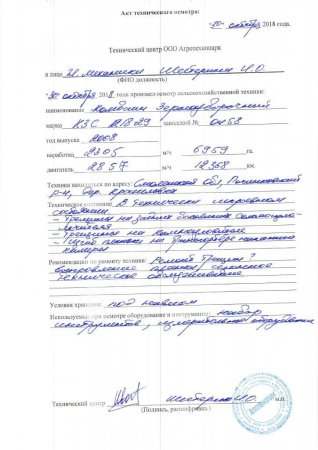 Акт технического осмотра:
«30» октября 2018 года.
Технический центр ООО Агротехнопарк
в лице гл. механика Шестерина И.О.
(ФИО должность)
«30» октября 2018 года произвел осмотр сельскохозяйственной техники:
наименование Комбайн Зерноуборочный
марка КЗС 1218-29 заводской № 0458
год выпуска 2008
наработка 2305 м/ч 6959 га.
двигатель 2857 м/ч 12358 км.
Техника находиться по адресу: Смоленская обл, Починковский
р-н, дер.
Техническое состояние: В технически исправном
состоянии.
- Трещины на задней боковине
- Трещины на
- на наклонной
камеры
Рекомендации по ремонту техники: Ремонт трещин
сезонное
техническое обслуживание
Условия хранения: под навесом
Используемые при осмотре оборудование и инструменты: набор
инструментов, измерительное оборудование
Технический центр Шестерин И.О. м.п.
(Подпись, расшифровка.)